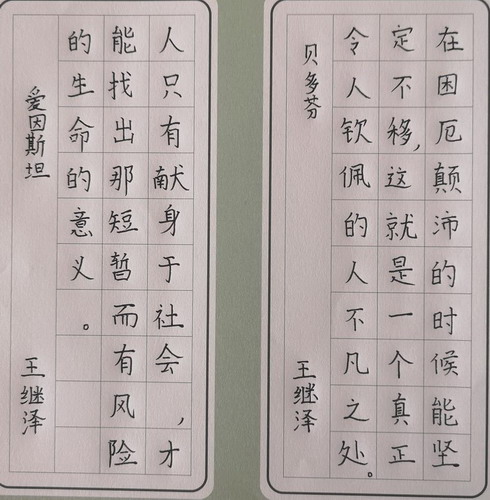 在困厄颠沛的时候能坚
定不移，这就是一个真正
令人钦佩的人不凡之处。
贝多芬 王继泽
人只有献身于社会，才
能找出那短暂而有风险
的生命的意义。
爱因斯坦 王继泽